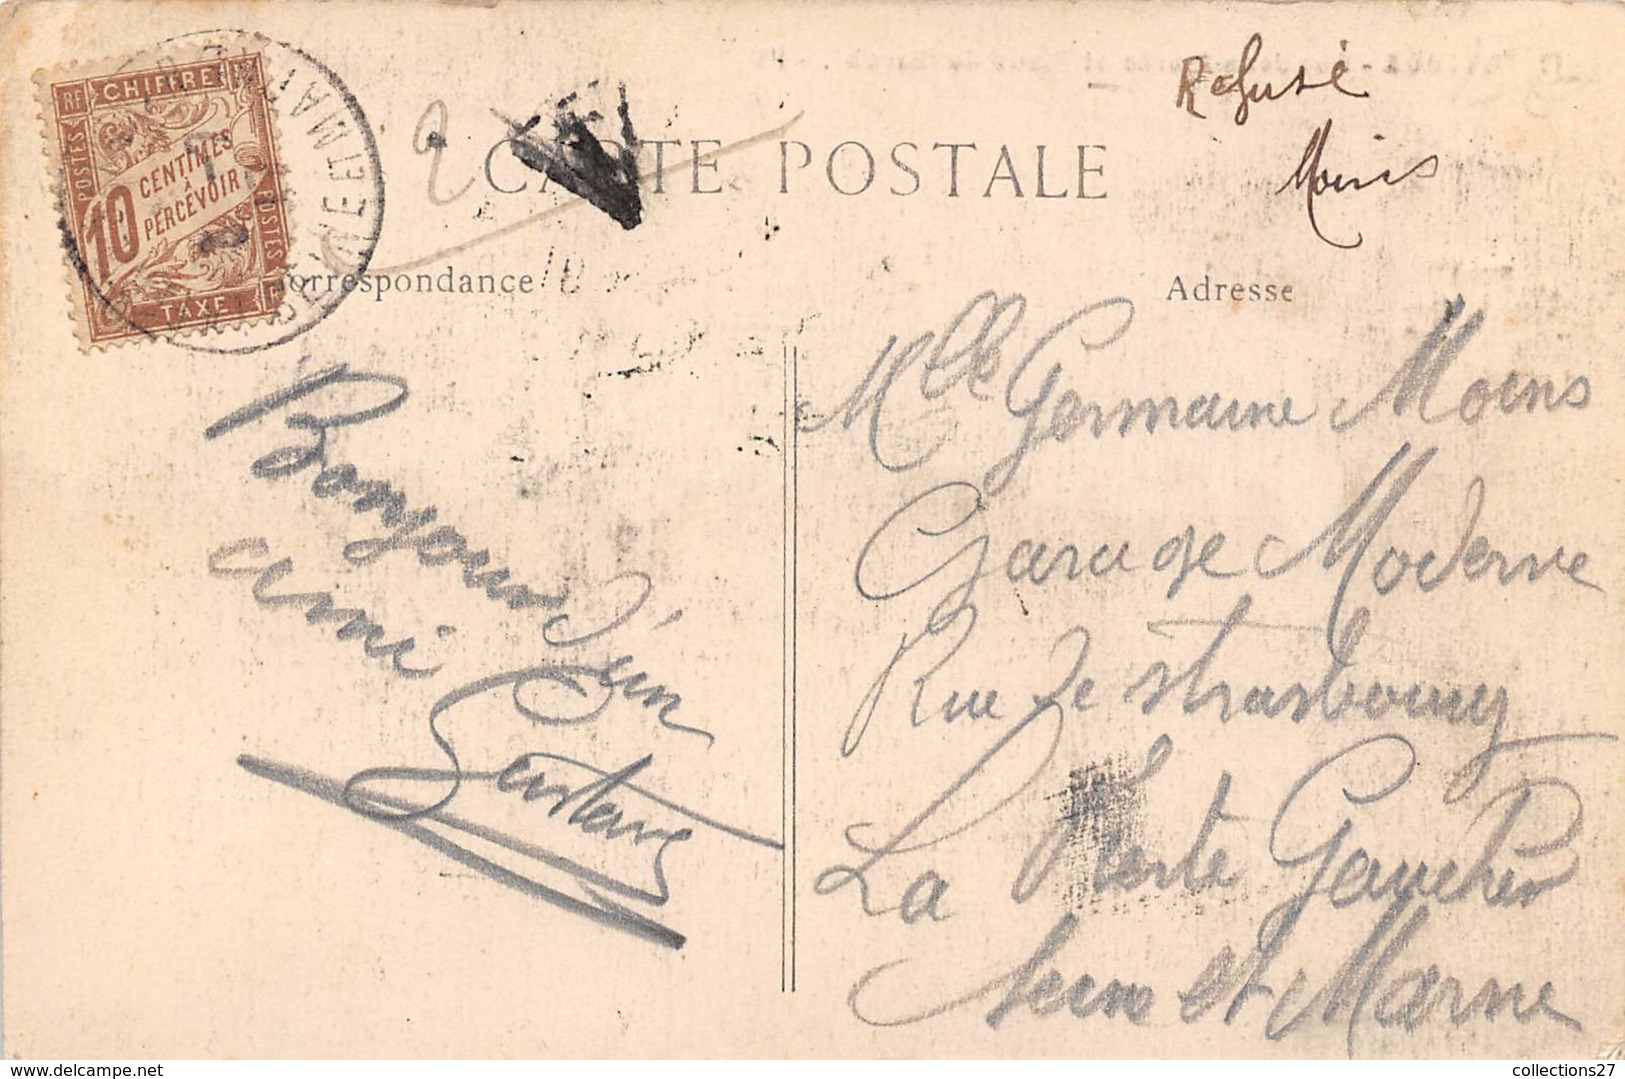 RF CHIFFRE
POSTES
10 CENTIMES
À
PERCEVOIR
POSTES
TAXE
CARTE POSTALE
Refusé
Moins
Correspondance
Adresse
10
Bonjour d'un
ami
Gustave
Mlle Germaine Moins
Garage Moderne
Rue de Strasbourg
La Ferté Gaucher
Seine et Marne
collections27